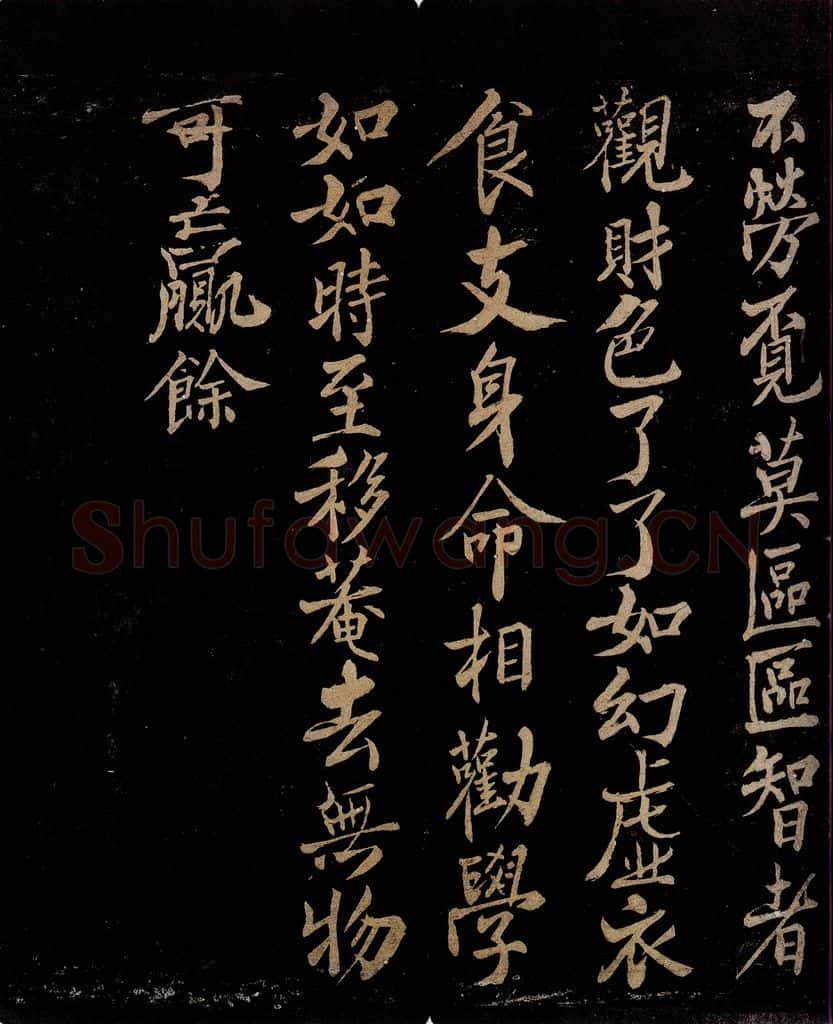 不勞覔莫區區智者
觀財色了了如幻虛衣
食支身命相勸學
如如時至移菴去無物
可贏餘
Shufawang.CN